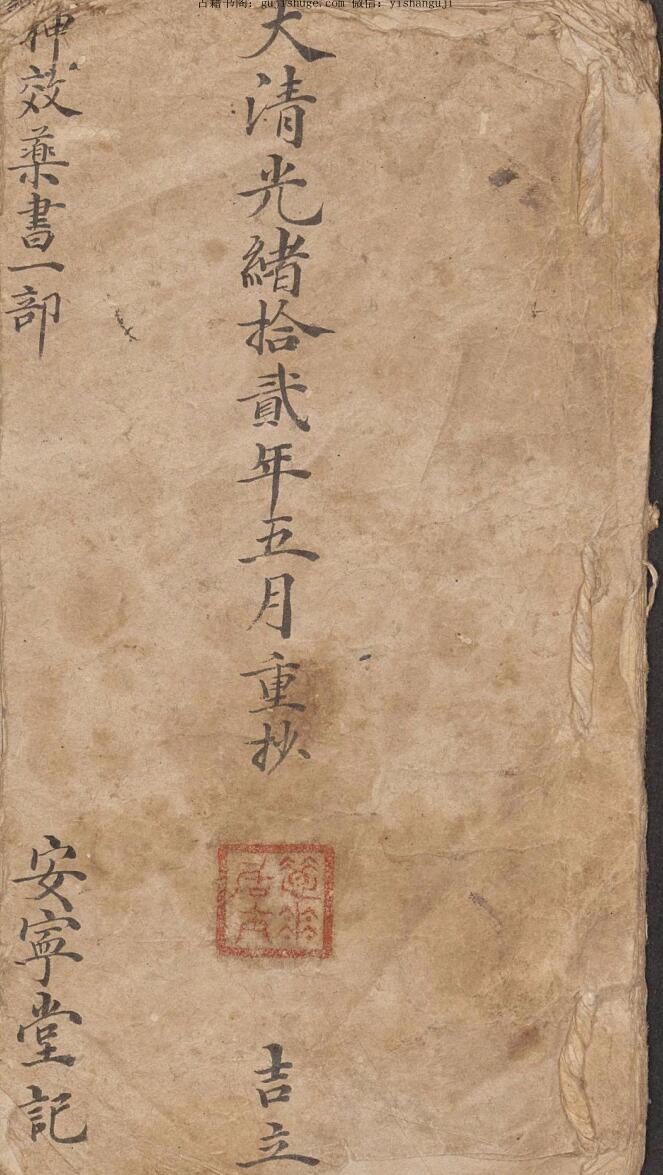 古籍书阁：gujishuge.com 微信：yishanguji
大清光緒拾貳年五月重抄
吉立
神效藥書一部
安寧堂記